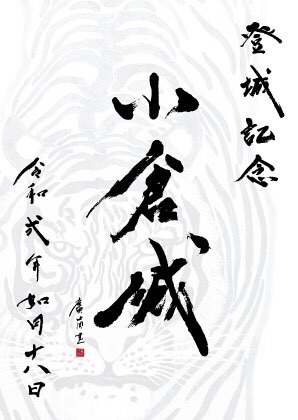 登城記念
小倉城
令和弐年如月十八日